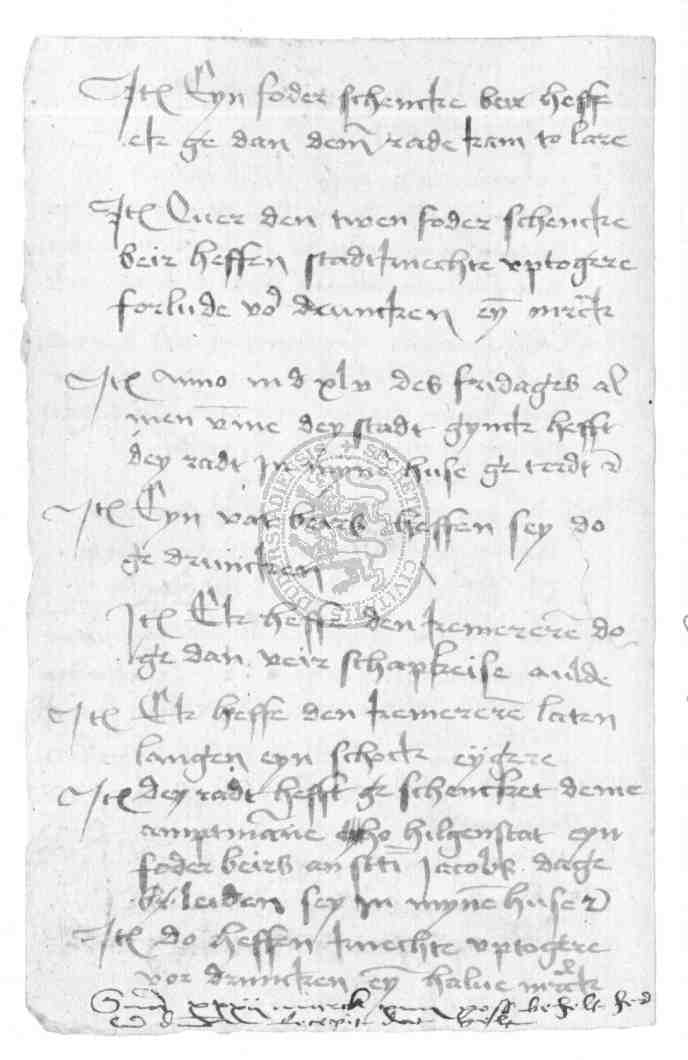 Itē Eyn foder schencke beir heffe
ek ge dan dem rade kam to lare
Itē Ouer den twen foder schencke
beir heffen stadtknechte vptogere
forlude vor druncken ey marck
Itē Anno m d xlv des fridages al
men vme dey stadt gynck hefft
dey radt in myne huse ge terdt
Itē Eyn vat beirs heffen sey do
ge druncken
Itē Ek heffe den kemereren do
ge dan veir schapkeise aulde
Itē Ek heffe den kemereren laten
langen eyn schock eygere
Itē dey radt hefft ge schencket deme
amptmanne tho hilgenstat eyn
foder beirs an scti Jacobs dage
leiden sey in myne huse
Itē do heffen knechte vptogere
vor druncken ey halue marck
Sma xxxii marck
recepit dat
SOCIETAS CIVITATIS